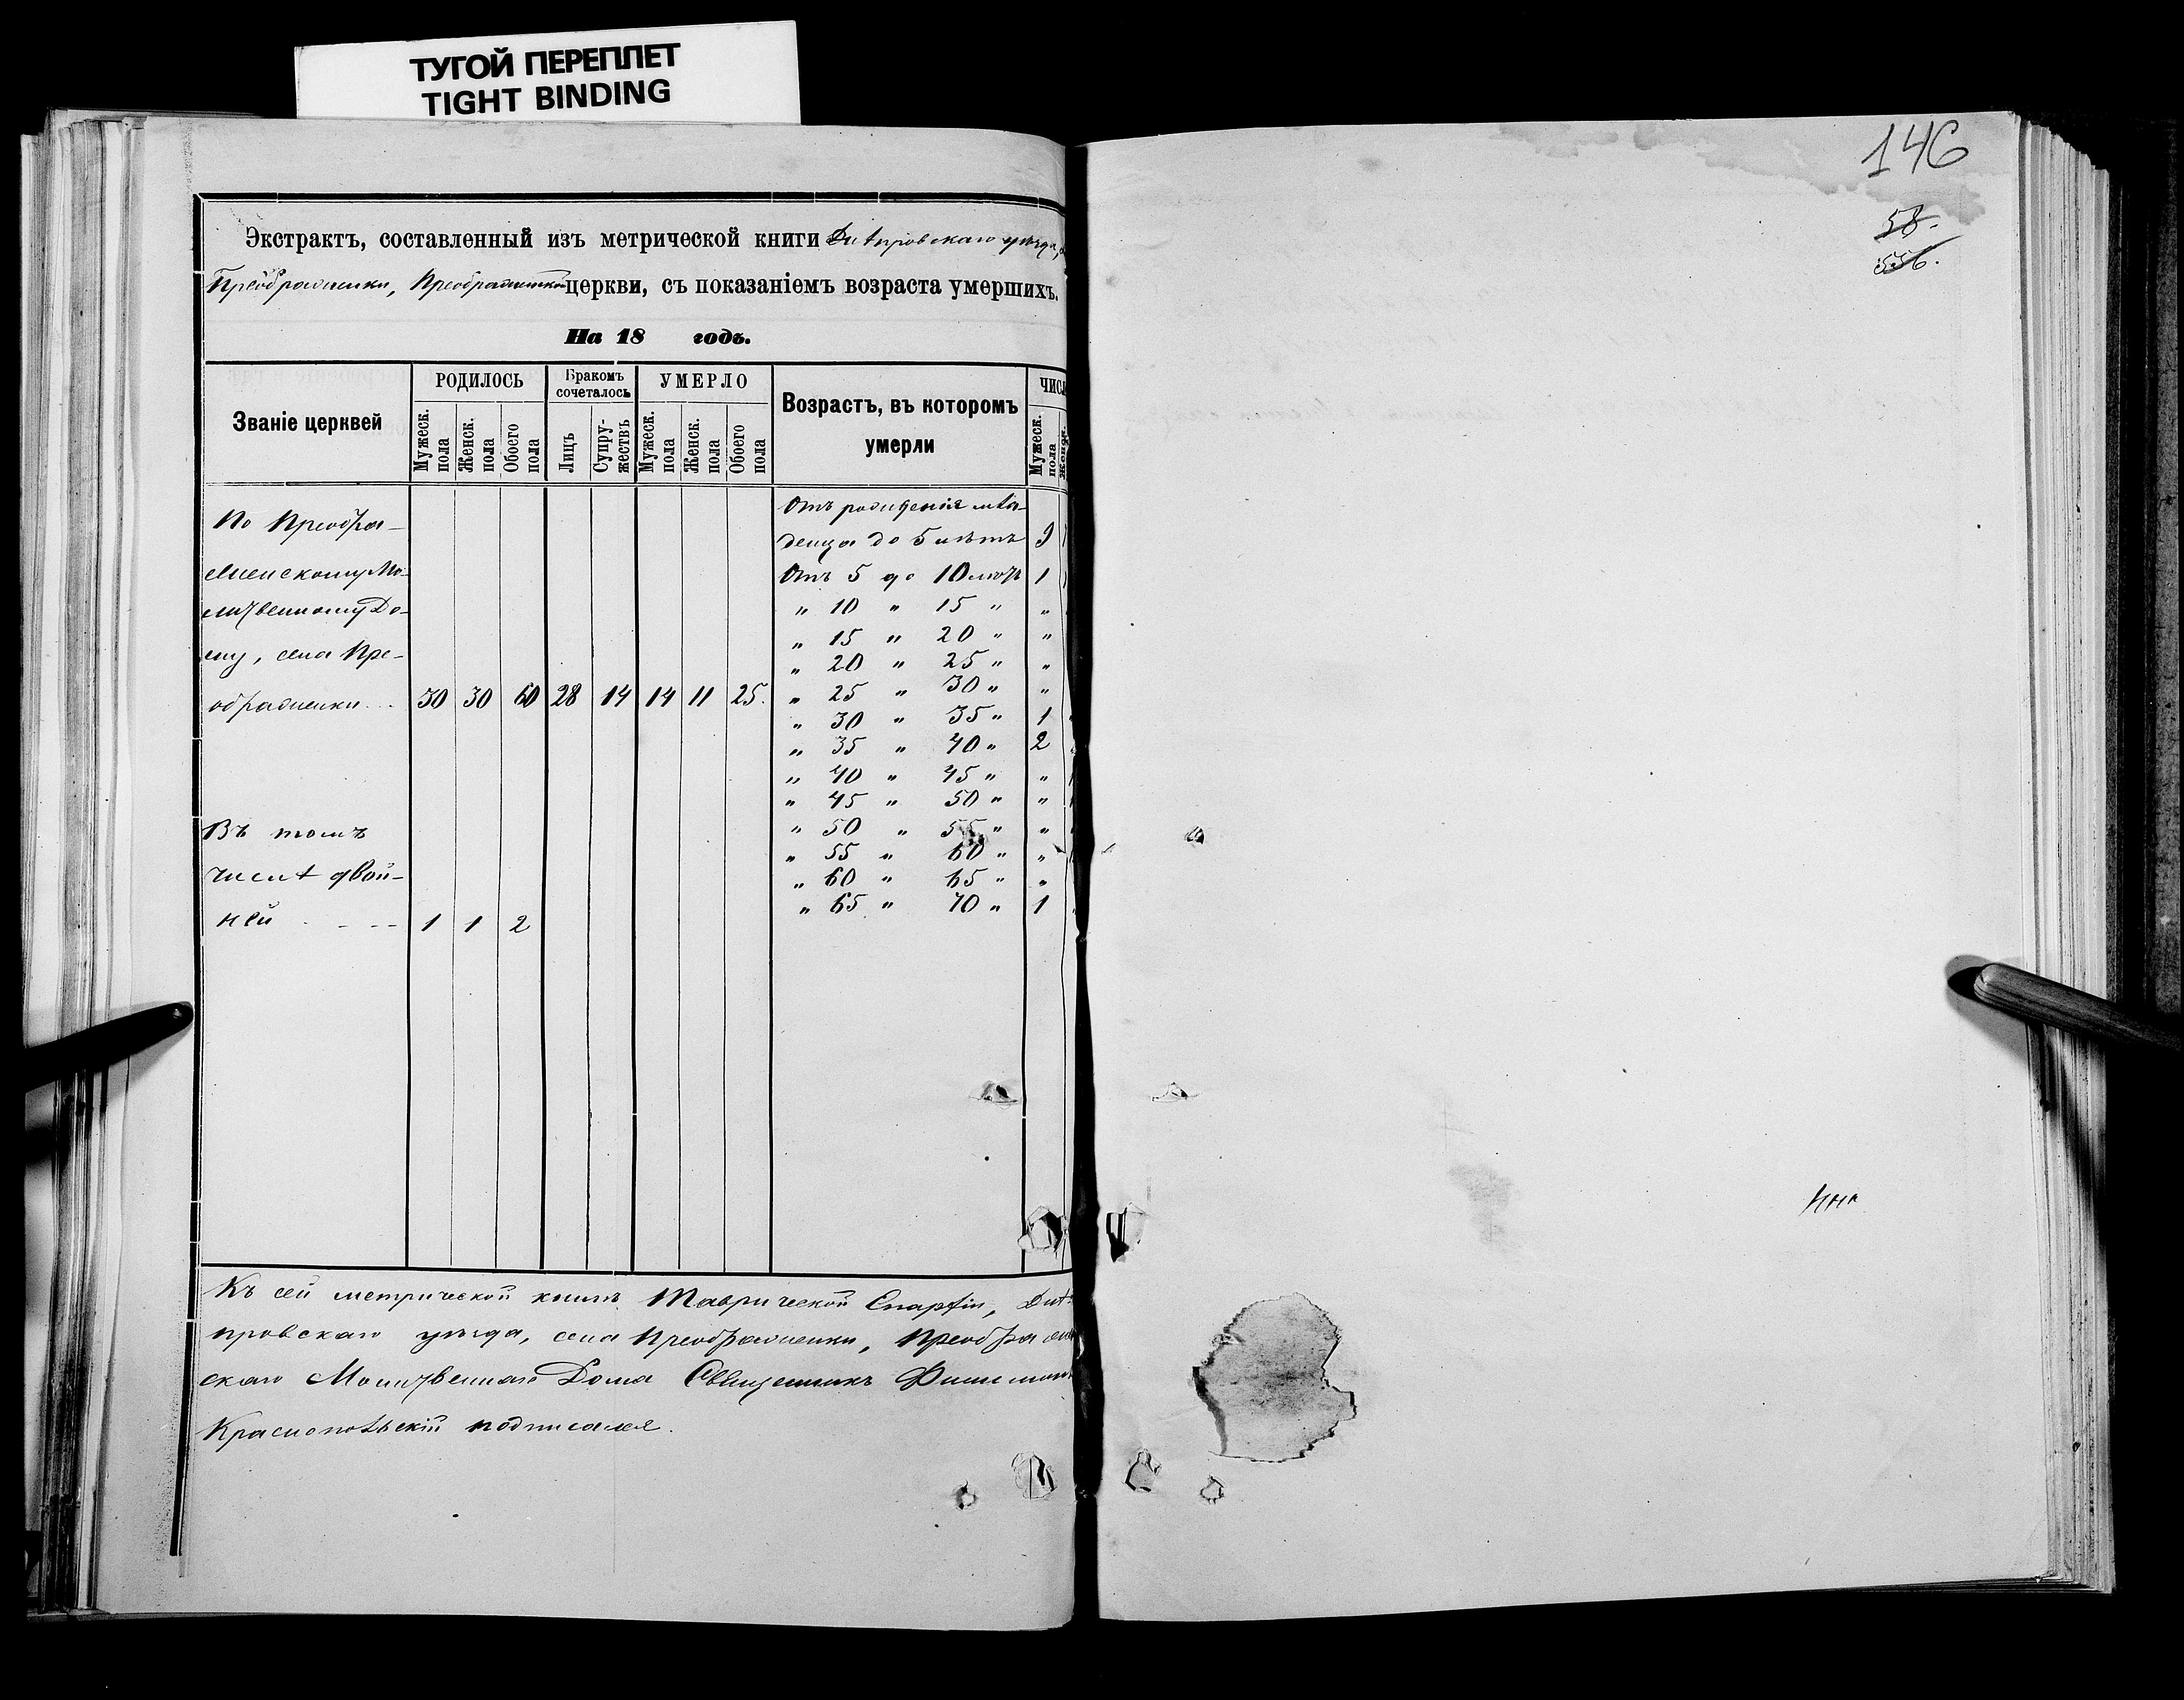 ТУГОЙ ПЕРЕПЛЕТ
TIGHT BINDING
Экстрактъ, составленный изъ метрической книги Днѣпровскаго уѣзда,
Преображенки, Преображенской церкви, съ показаніемъ возраста умершихъ.
На 18 годъ.
Званіе церквей
РОДИЛОСЬ
Бракомъ сочеталось
УМЕРЛО
Возрастъ, въ которомъ умерли
Мужеск. пола
Женск. пола
Обоего пола
Лицъ
Супружествъ
Мужеск. пола
Женск. пола
Обоего пола
Мужеск. пола
Женск.
По Преобра-
женскому Мо-
литвенному До-
му, села Пре-
ображенки... 30 30 60 28 14 14 11 25.
Въ томъ
числѣ двой-
ней - - - 1 1 2
Отъ рожденія мла-
денца до 5 лѣтъ 9
Отъ 5 до 10 лѣтъ 1
" 10 " 15 " "
" 15 " 20 " "
" 20 " 25 " "
" 25 " 30 " "
" 30 " 35 " 1
" 35 " 40 " 2
" 40 " 45 " "
" 45 " 50 " "
" 50 " 55 " "
" 55 " 60 " "
" 60 " 65 " "
" 65 " 70 " 1
Къ сей метрической книгѣ Таврической Епархіи, Днѣ-
провскаго уѣзда, села Преображенки, Преображен
скаго Молитвеннаго Дома Священникъ Филимонъ
Краснопольскій подписался.
146
58.
556.